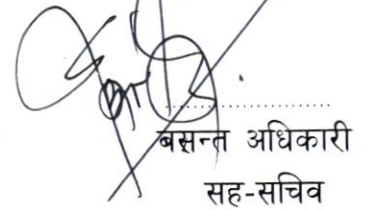 बसन्त अधिकारी
सह-सचिव